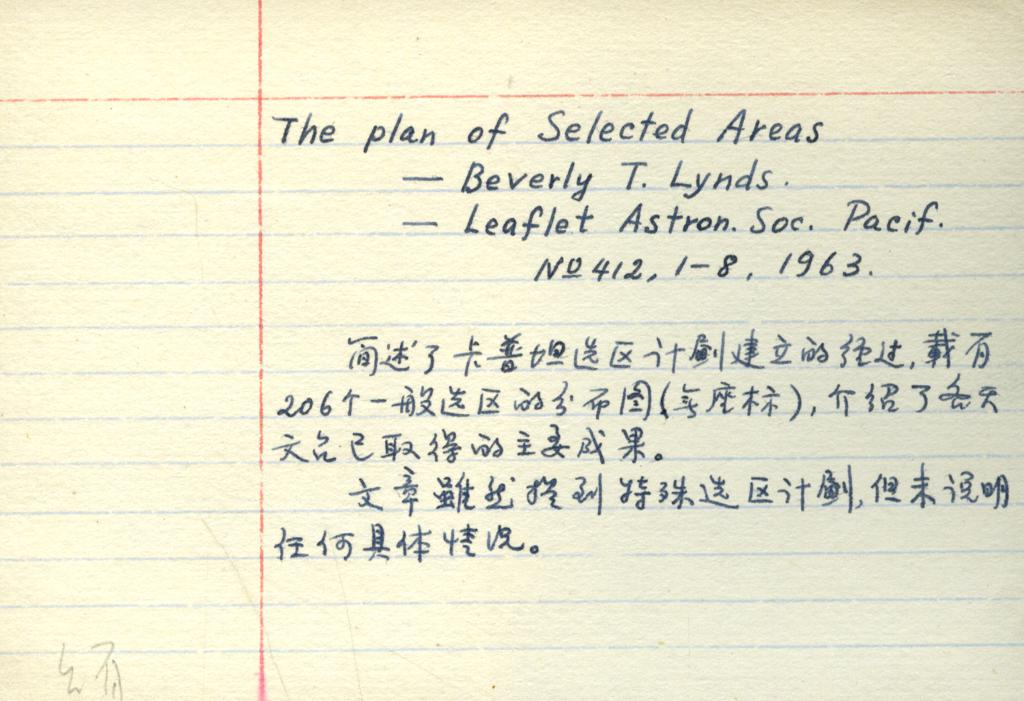 The plan of Selected Areas
— Beverly T. Lynds.
— Leaflet Astron. Soc. Pacif.
№ 412, 1-8, 1963.
简述了卡普坦选区计劃建立的经过,载有
206个一般选区的分布图(无座标),介绍了各天
文台已取得的主要成果。
文章雖然提到特殊选区计劃,但未说明
任何具体情况。
台有